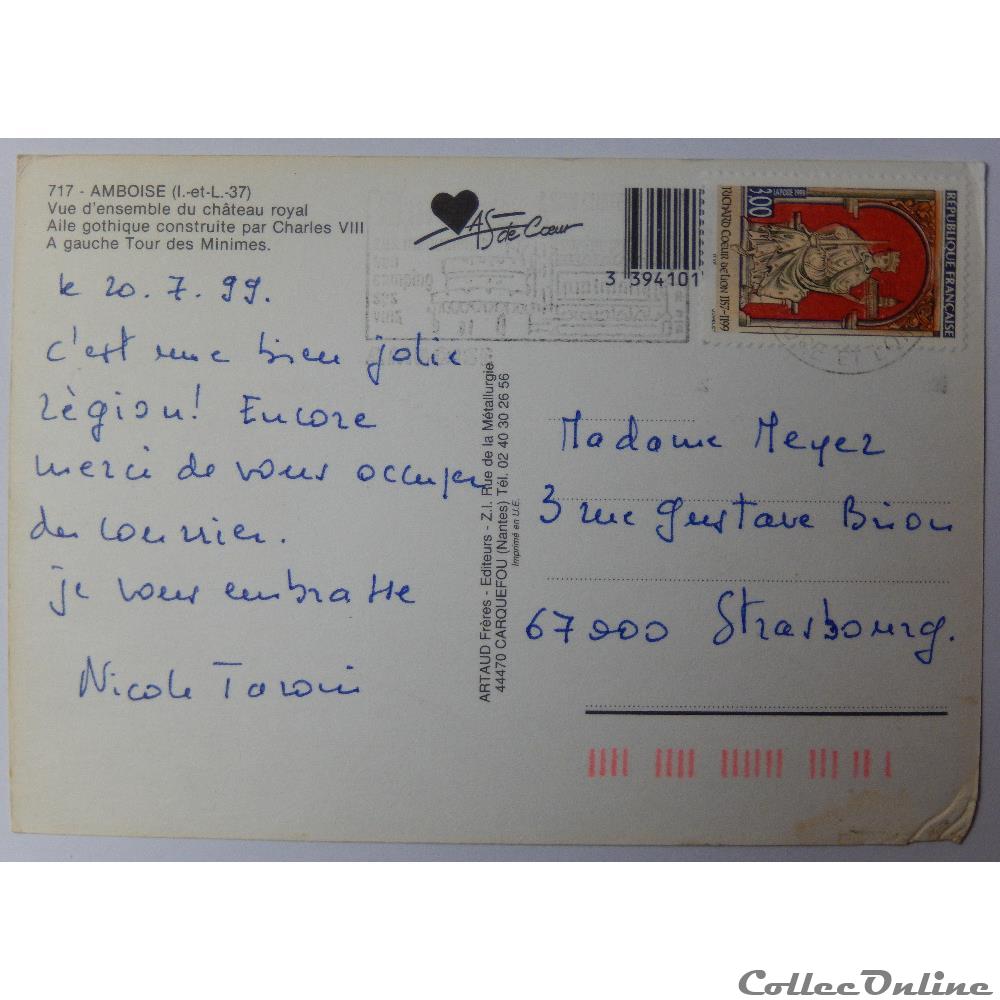 717 - AMBOISE (I.-et-L.-37)
Vue d'ensemble du château royal
Aile gothique construite par Charles VIII
A gauche Tour des Minimes.
le 20.7.99.
c'est une bien jolie
région! Encore
merci de vous occuper
du courrier.
je vous embrasse
Nicole
As de Cœur
3 394101
ARTAUD Frères - Editeurs - Z.I. Rue de la Métallurgie
44470 CARQUEFOU (Nantes) Tél. 02 40 30 26 56
Imprimé en U.E.
REPUBLIQUE FRANÇAISE
3,00
LA POSTE 1999
RICHARD COEUR DE LION 1157-1199
Madame Meyer
3 rue Gustave Brion
67000 Strasbourg.
CollecOnline